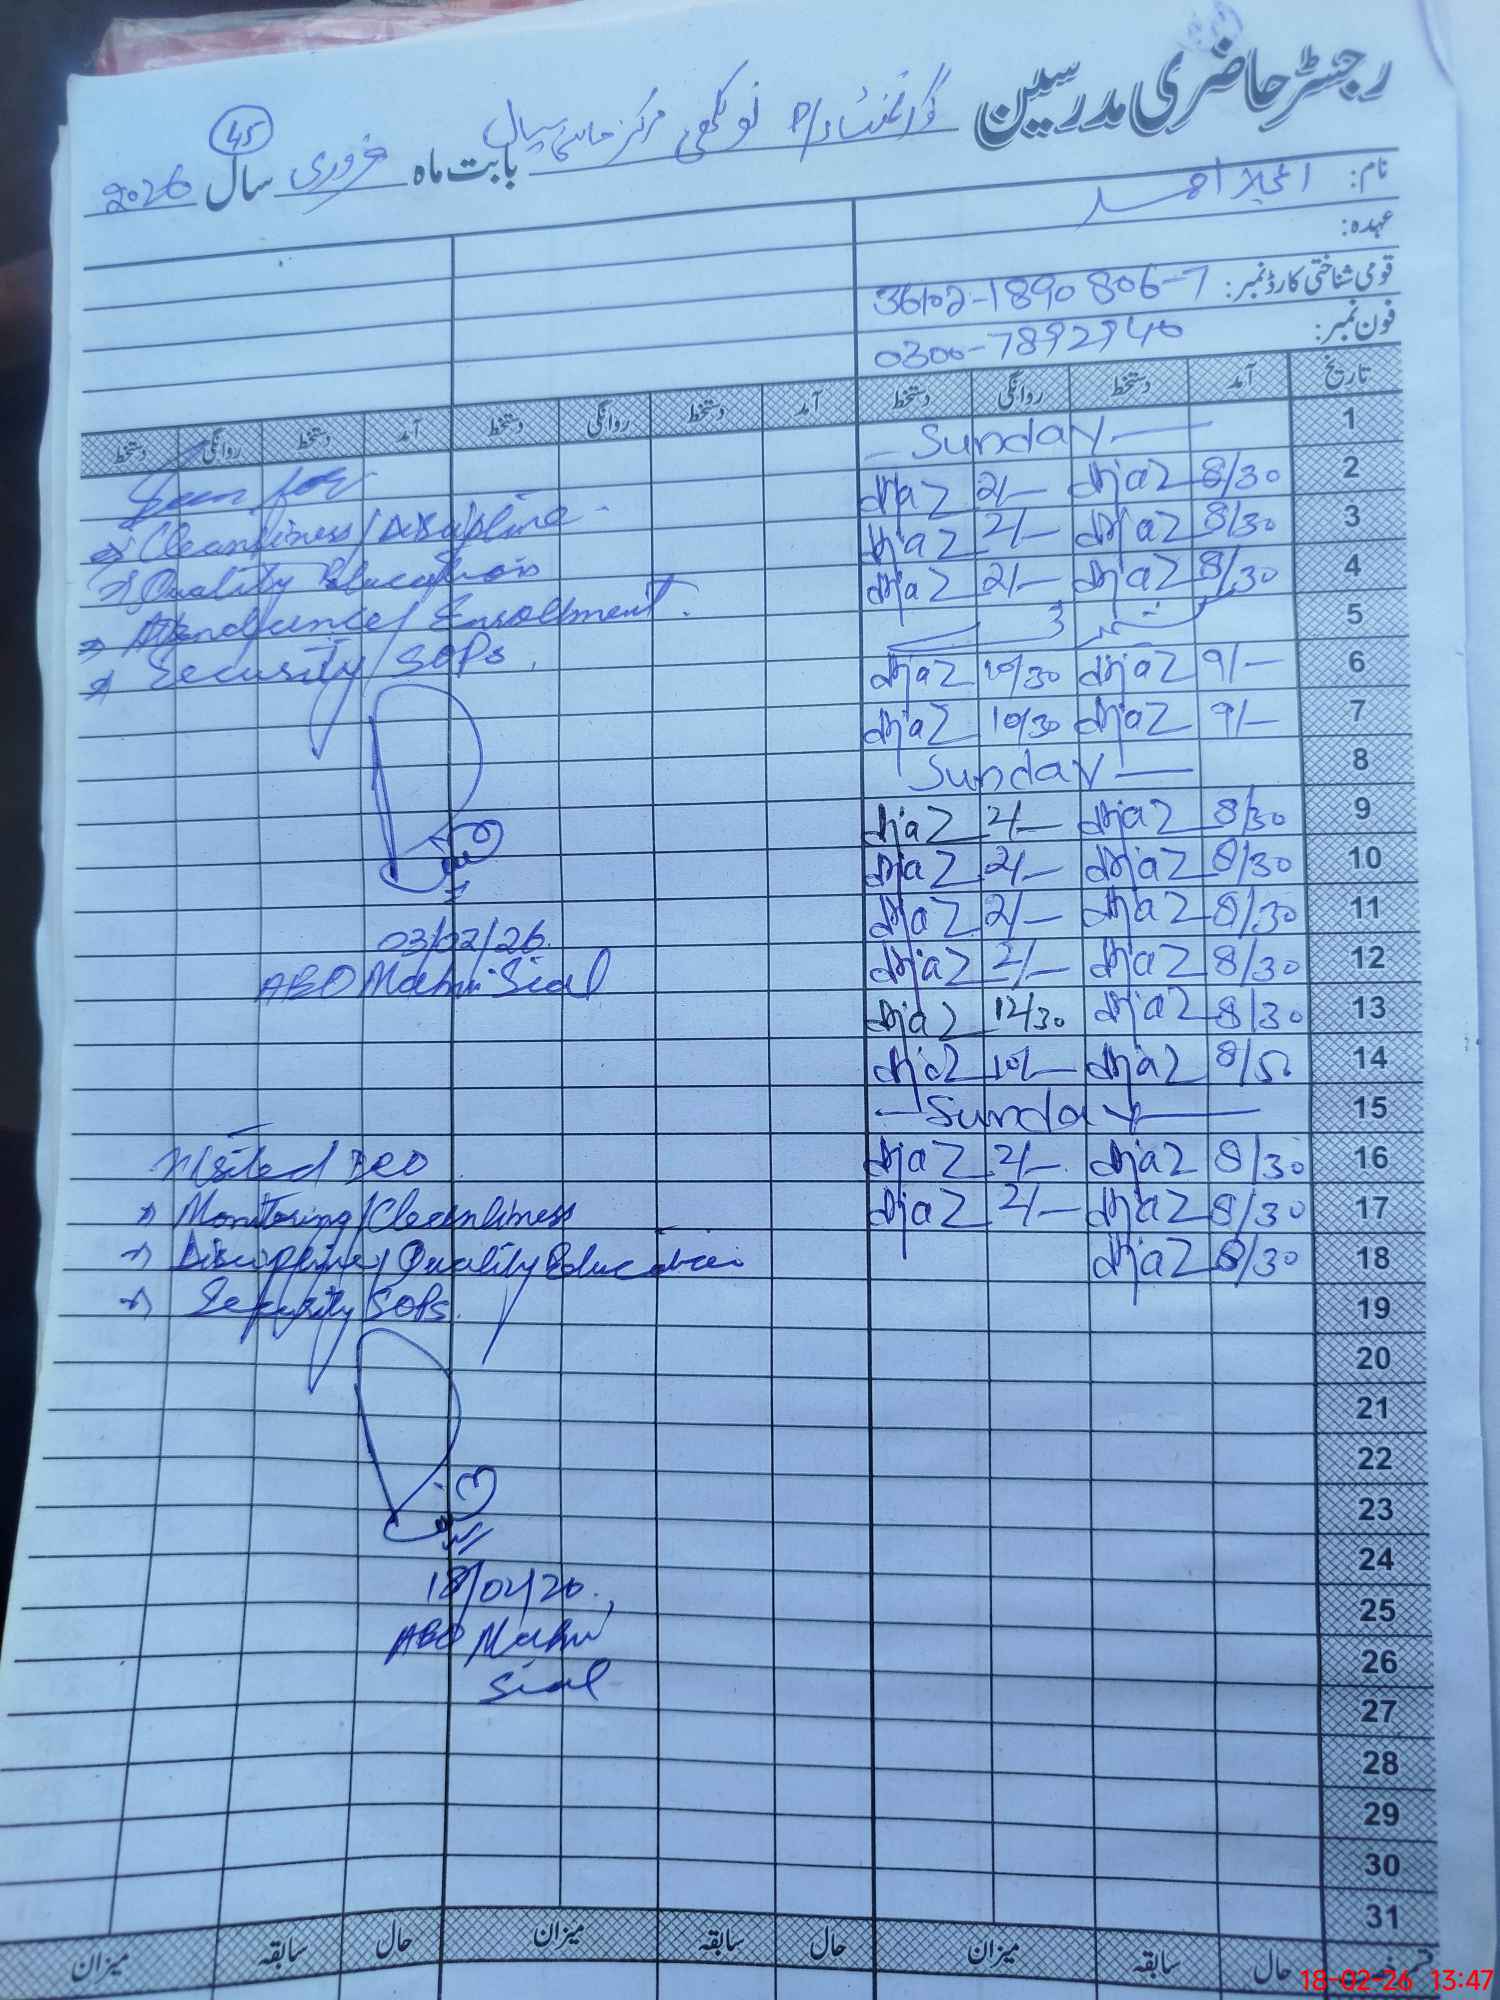 رجسٹر حاضری مدرسین گورنمنٹ P/S نو لکھی مرکز ماہنی سیال بابت ماہ فروری سال 2026
45
نام: اعجاز احمد
عہدہ:
قومی شناختی کارڈ نمبر: 36102-1890806-7
فون نمبر: 0300-7892940
تاریخ آمد دستخط روانگی دستخط آمد دستخط روانگی دستخط آمد دستخط روانگی دستخط
1 Sunday
2 8/30 Ajaz 2/- Ajaz
3 8/30 Ajaz 2/- Ajaz
4 8/30 Ajaz 2/- Ajaz
5
6 9/- Ajaz 10/30 Ajaz
7 9/- Ajaz 10/30 Ajaz
8 Sunday
9 8/30 Ajaz 2/- Ajaz
10 8/30 Ajaz 2/- Ajaz
11 8/30 Ajaz 2/- Ajaz
12 8/30 Ajaz 2/- Ajaz
13 8/30 Ajaz 12/30 Ajaz
14 8/50 Ajaz 10/- Ajaz
15 Sunday
16 8/30 Ajaz 2/- Ajaz
17 8/30 Ajaz 2/- Ajaz
18 8/30 Ajaz
19
20
21
22
23
24
25
26
27
28
29
30
31
Seen for
Cleanliness/Discipline
Quality Education
Attendance/Enrollment
Security/SOPs.
03/02/26
AEO Mahni Sial
Visited
Monitoring/Cleanliness
Discipline/Quality Education
Security/SOPs.
18/02/26
AEO Mahni
Sial
حال سابقہ میزان حال سابقہ میزان حال سابقہ میزان
18-02-26 13:47